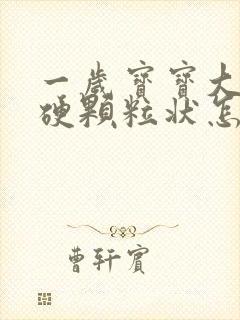 一歲寶寶大
硬顆粒狀怎
曹轩賓